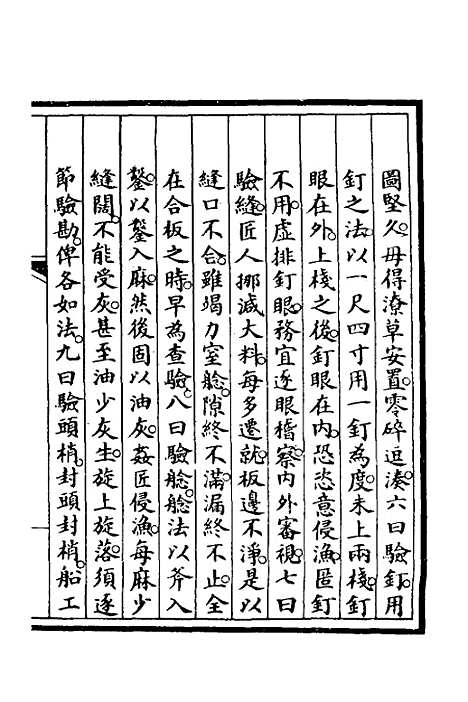 圖堅久毋得潦草安置零碎逗湊六曰驗釘用
釘之法以一尺四寸用一釘為度未上兩棧釘
眼在外上棧之後釘眼在内恐恣意侵漁匿釘
不用虚排釘眼務宜逐眼稽察内外審視七曰
驗縫匠人挪減大料每多遷就板邊不淨是以
縫口不合雖竭力室艌隙終不滿漏終不止全
在合板之時早為查驗八曰驗艌艌法以斧入
鑿以鑿入麻然後固以油灰姦匠侵漁每麻少
縫闊不能受灰甚至油少灰生旋上旋落須逐
節驗勘俾各如法九曰驗頭梢封頭封梢船工